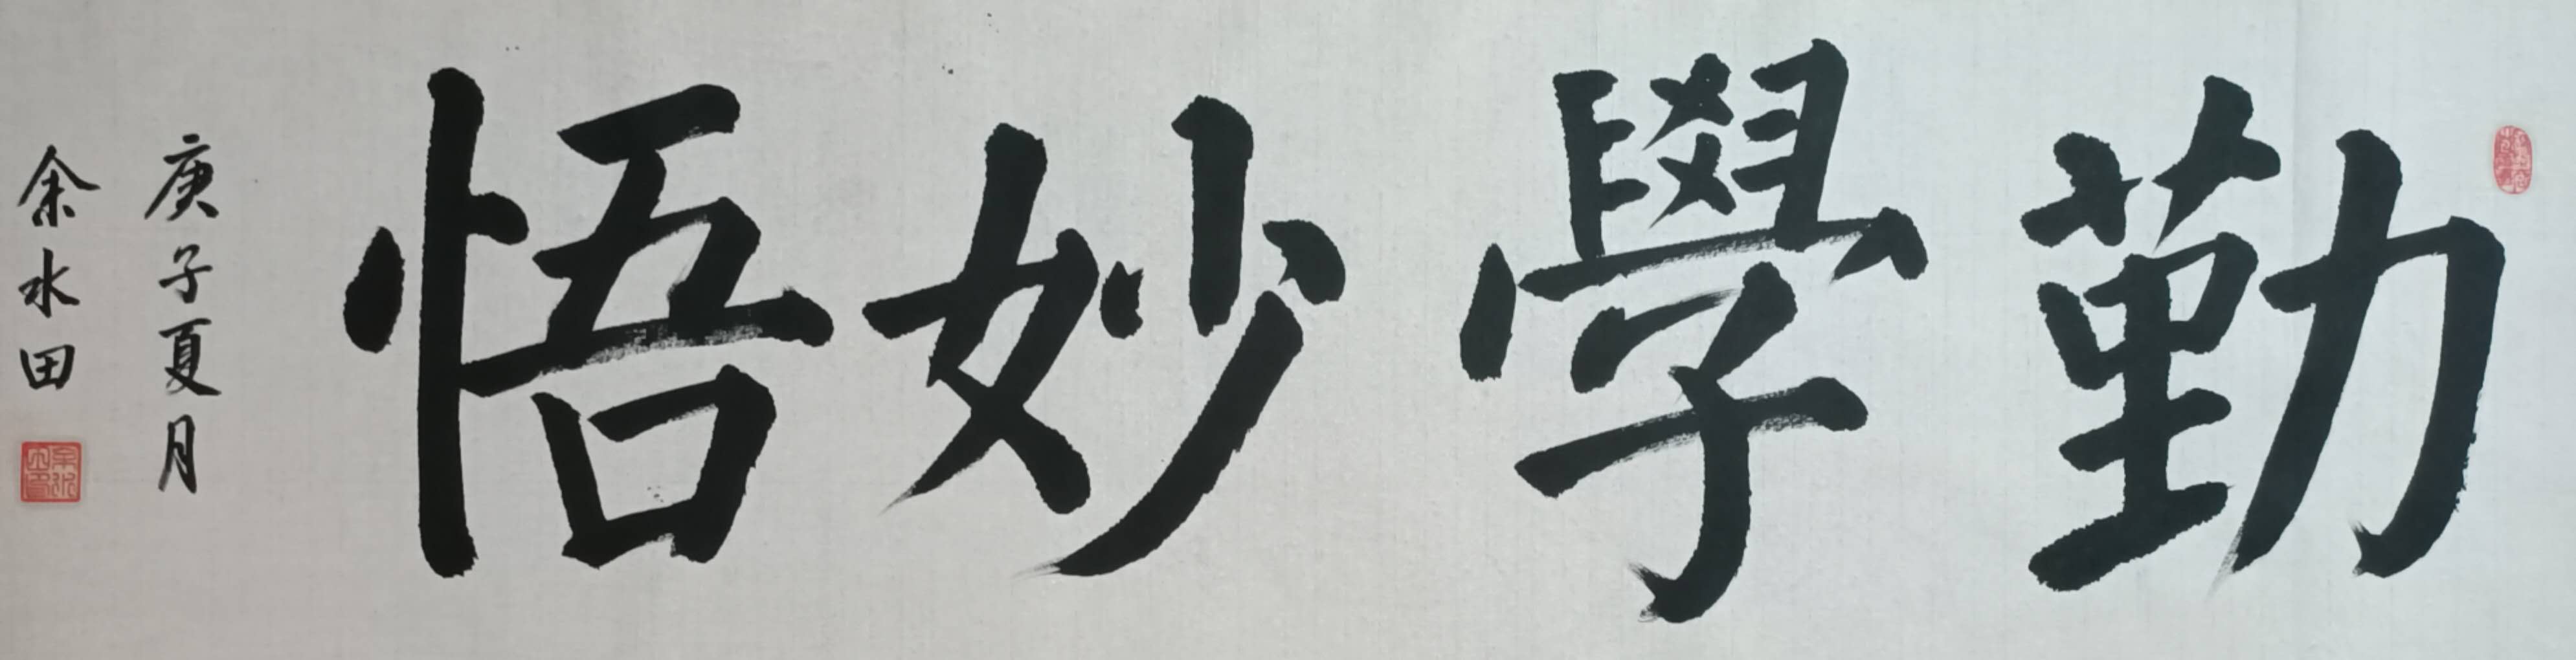 勤學妙悟
庚子夏月
余水田